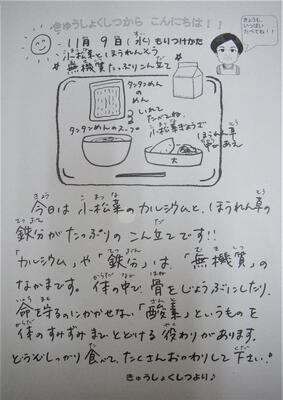 きゅうしょくしつから こんにちは!!
11月9日(水)もりつけかた
小松菜とほうれんそう
無機質たっぷりこん立て
きょうも、
いっぱい
たべてね!!
タンタンメン
の
めん
いれて
たべてね。
タンタンめんのスープ
小松菜ぎょうざ
ほうれん草
あえ
大
今日は小松菜のカルシウムと、ほうれん草の
鉄分がたっぷりのこん立てです!!
「カルシウム」や「鉄分」は、「無機質」の
なかまです。体の中で、骨をじょうぶにしたり、
命を守るのにかかせない「酸素」というものを
体のすみずみまでとどける役わりがあります。
どうぞしっかり食べて、たくさんおかわりして下さい。
きゅうしょくしつより♪